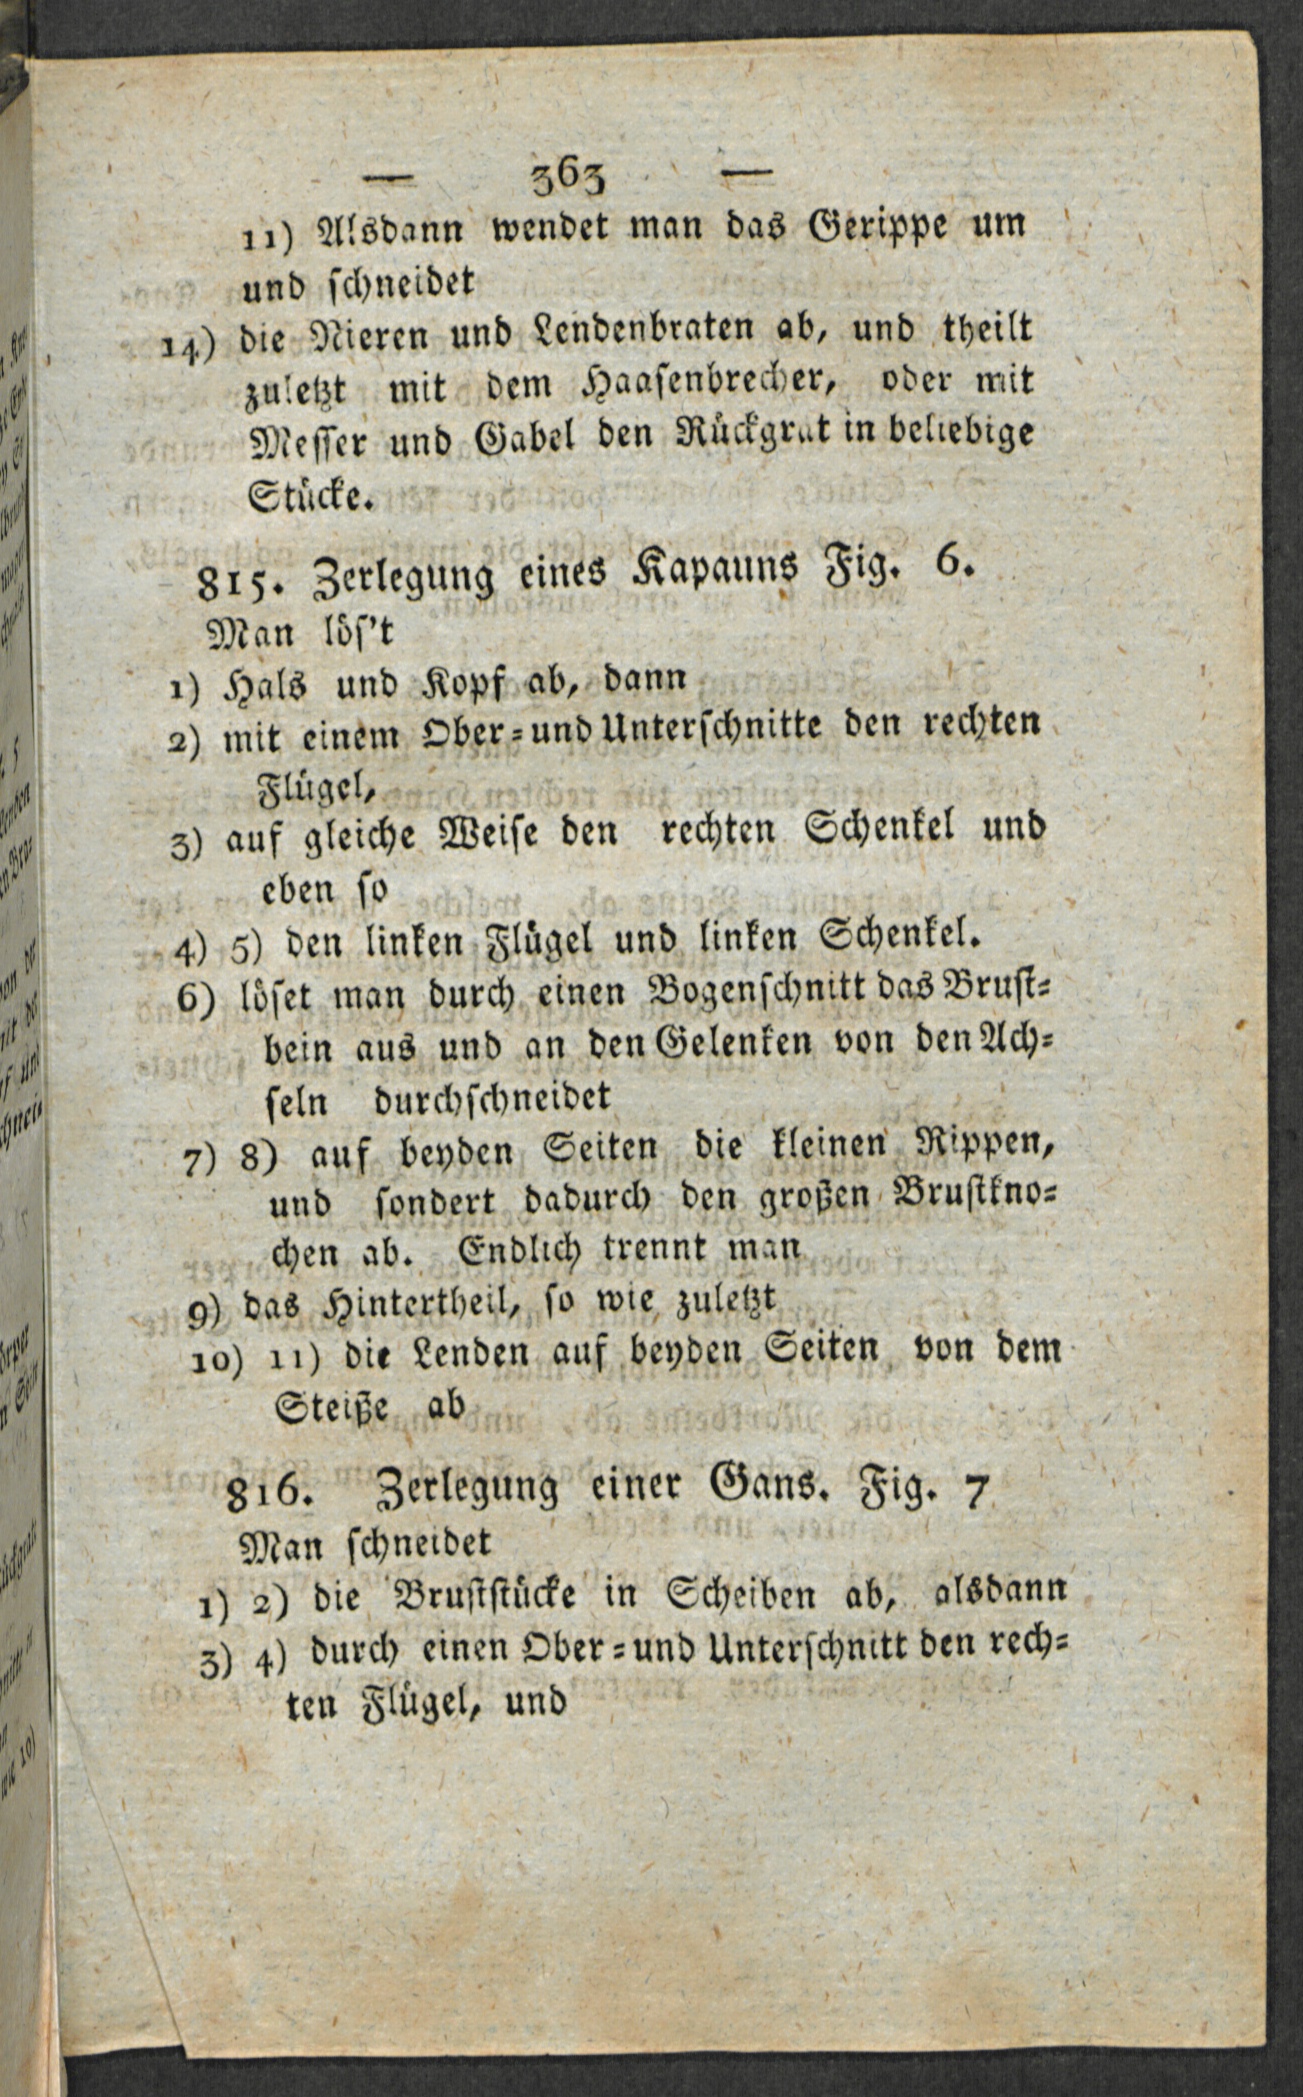 — 363 —
11) Alsdann wendet man das Gerippe um
und schneidet
14) die Nieren und Lendenbraten ab, und theilt
zuletzt mit dem Haasenbrecher, oder mit
Messer und Gabel den Rückgrat in beliebige
Stücke.
815. Zerlegung eines Kapauns Fig. 6.
Man lös't
1) Hals und Kopf ab, dann
2) mit einem Ober- und Unterschnitte den rechten
Flügel,
3) auf gleiche Weise den rechten Schenkel und
eben so
4) 5) den linken Flügel und linken Schenkel.
6) löset man durch einen Bogenschnitt das Brust-
bein aus und an den Gelenken von den Ach-
seln durchschneidet
7) 8) auf beyden Seiten die kleinen Rippen,
und sondert dadurch den großen Brustkno-
chen ab. Endlich trennt man
9) das Hintertheil, so wie zuletzt
10) 11) die Lenden auf beyden Seiten von dem
Steiße ab
816. Zerlegung einer Gans. Fig. 7
Man schneidet
1) 2) die Bruststücke in Scheiben ab, alsdann
3) 4) durch einen Ober- und Unterschnitt den rech-
ten Flügel, und